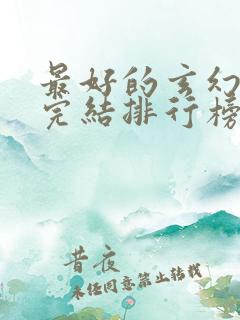 最好的玄幻
完结排行榜
昔夜
未经同意禁止转载